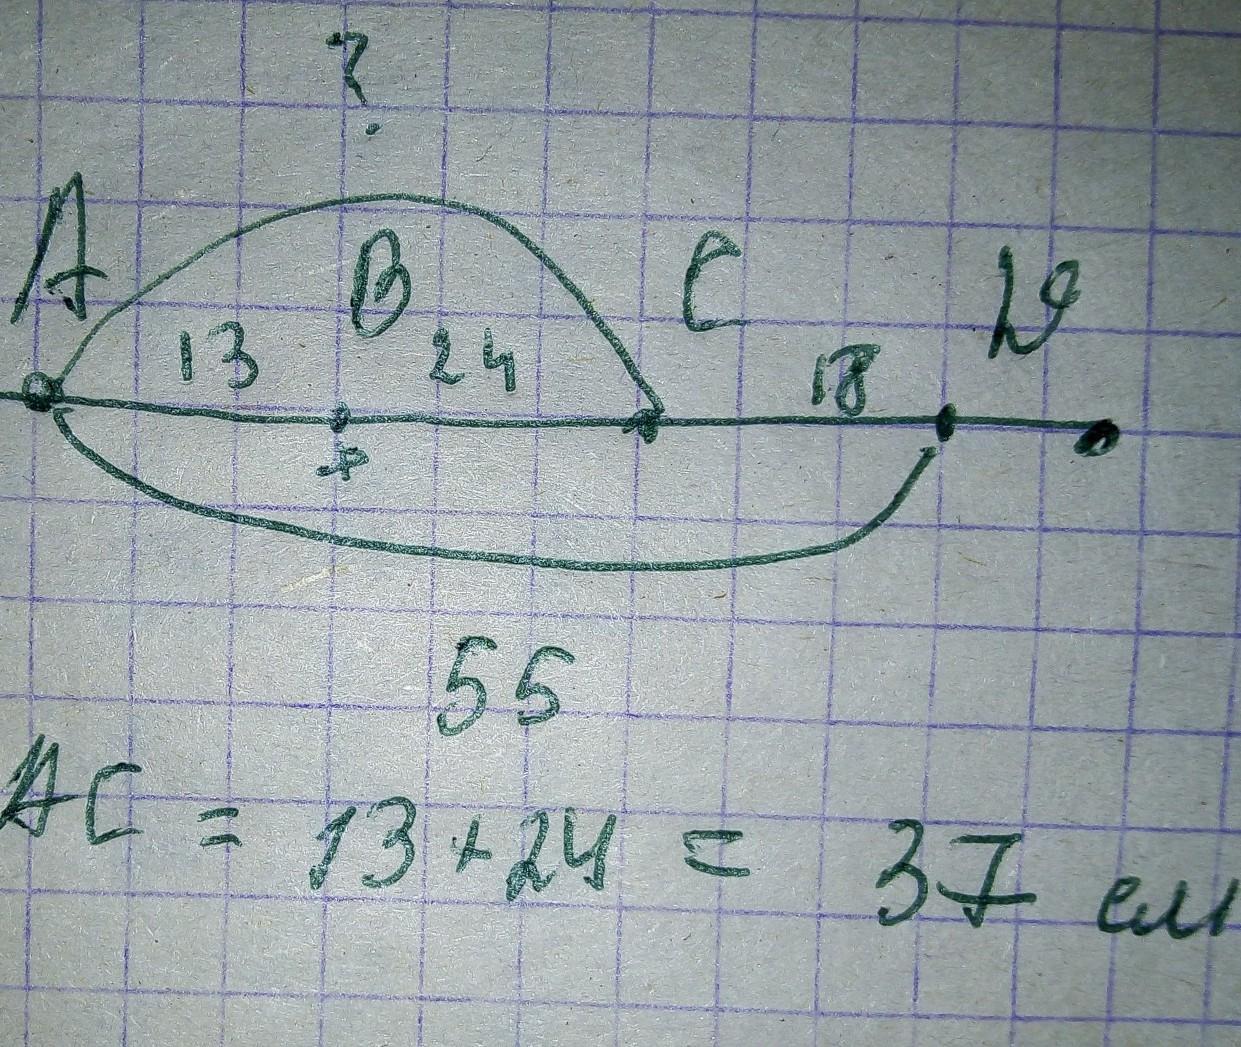 ?
A B C D
13 24 18
+
55
AC = 13 + 24 = 37 см